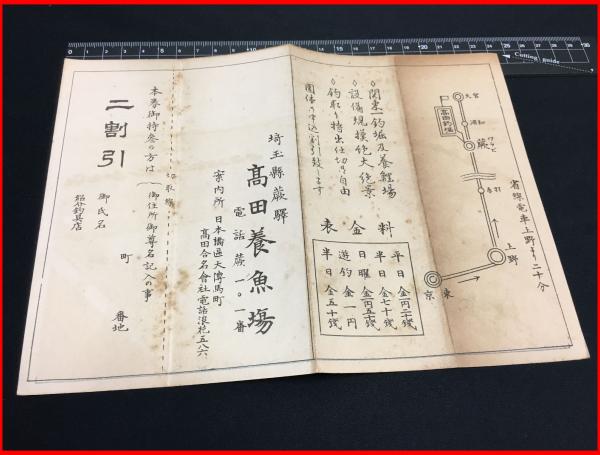 省線電車上野より二十分
大宮
浦和
蕨
ワラビ
高田釣場
赤羽
上野
東京
○関東一釣堀及養鯉場
○設備規模絶大絶景
○釣取り持出仕切り自由
団体の申込割引致します
料金表
平日 金一円二十銭
半日 金七十銭
日曜 金一円五十銭
遊釣 金一円
半日 金五十銭
埼玉縣蕨驛
髙田養魚場
電話蕨一〇一番
案内所 日本橋區大傳馬町
高田合名會社電話浪花五八六
切取線
本券御持参の方は(御住所御尊名記入の事
二割引
町
番地
御氏名
紹介釣具店
Cutting guide